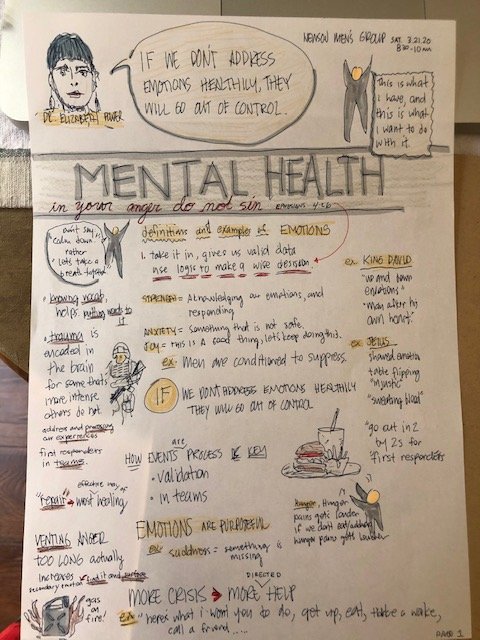 NEWSON MEN'S GROUP SAT. 3.21.20
8:30-10AM
IF WE DON'T ADDRESS
EMOTIONS HEALTHILY, THEY
WILL GO OUT OF CONTROL.
DR. ELIZABETH POWER
This is what
i have, and
this is what
i want to do
with it.
MENTAL HEALTH
in your anger do not sin EPHESIANS 4:26
Don't say
"calm down"
rather
"Lets take a
breath together"
definitions and examples of EMOTIONS
1. take it in, gives us valid data
use logic to make a wise decision.
STRENGTH = Acknowledging our emotions, and
responding.
ANXIETY = Something that is not safe.
JOY = THIS IS A good THING, lets keep doing this.
ex: Men are conditioned to suppress.
IF WE DON'T ADDRESS EMOTIONS HEALTHILY
THEY WILL GO OUT OF CONTROL
ex KING DAVID
"up and down
emotions"
"man after his
own heart."
ex JESUS
shared emotion
table flipping
"mystic"
"sweating blood"
"go out in 2
by 2s for
"first responders
• knowing vocab,
helps. putting words to
it
• trauma is
encoded in
the brain
for some thats
more intense
others do not
address and process
our experiences
first responders
in trauma.
HOW EVENTS are PROCESS IS KEY
• validation
• in teams
hunger, Hunger
pains gets louder
if we don't eat/address
hunger pains gets louder
effective way of
"repair" → went healing
EMOTIONS ARE PURPOSEFUL
ex: saddness = something is
missing
VENTING ANGER
TOO LONG actually
increases
secondary emotion
gas
on
fire!
DIRECTED
MORE CRISIS → MORE HELP
ex: "heres what i want you to do, get up, eat, take a wake,
call a friend .....
PAGE 1